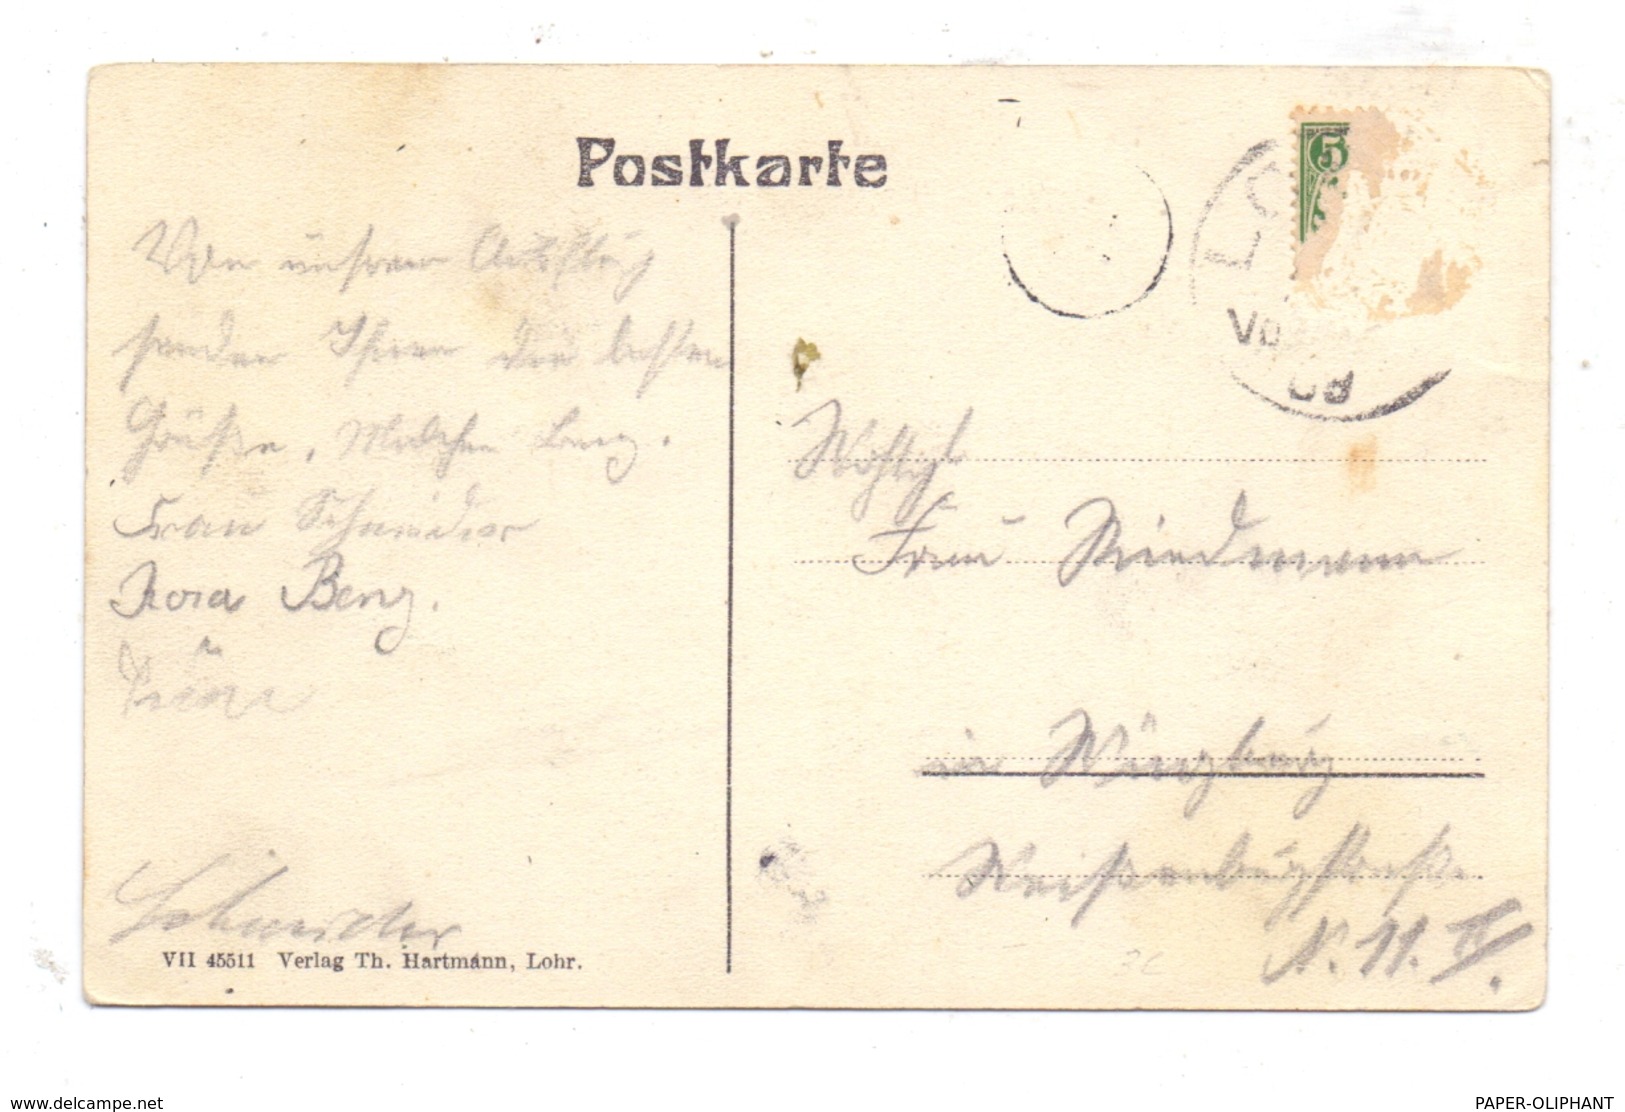 Postkarte
Von unserem Ausflug
senden Ihnen die besten
Grüße, Malchen Benz.
Frau Schneider
Rosa Benz.
Schneider
VII 45511 Verlag Th. Hartmann, Lohr.
5
LO
09
Wohlgb
Frau Riedmann
in Würzburg
Weißenburgstraße
N. 11. IV.
www.delcampe.net
PAPER-OLIPHANT